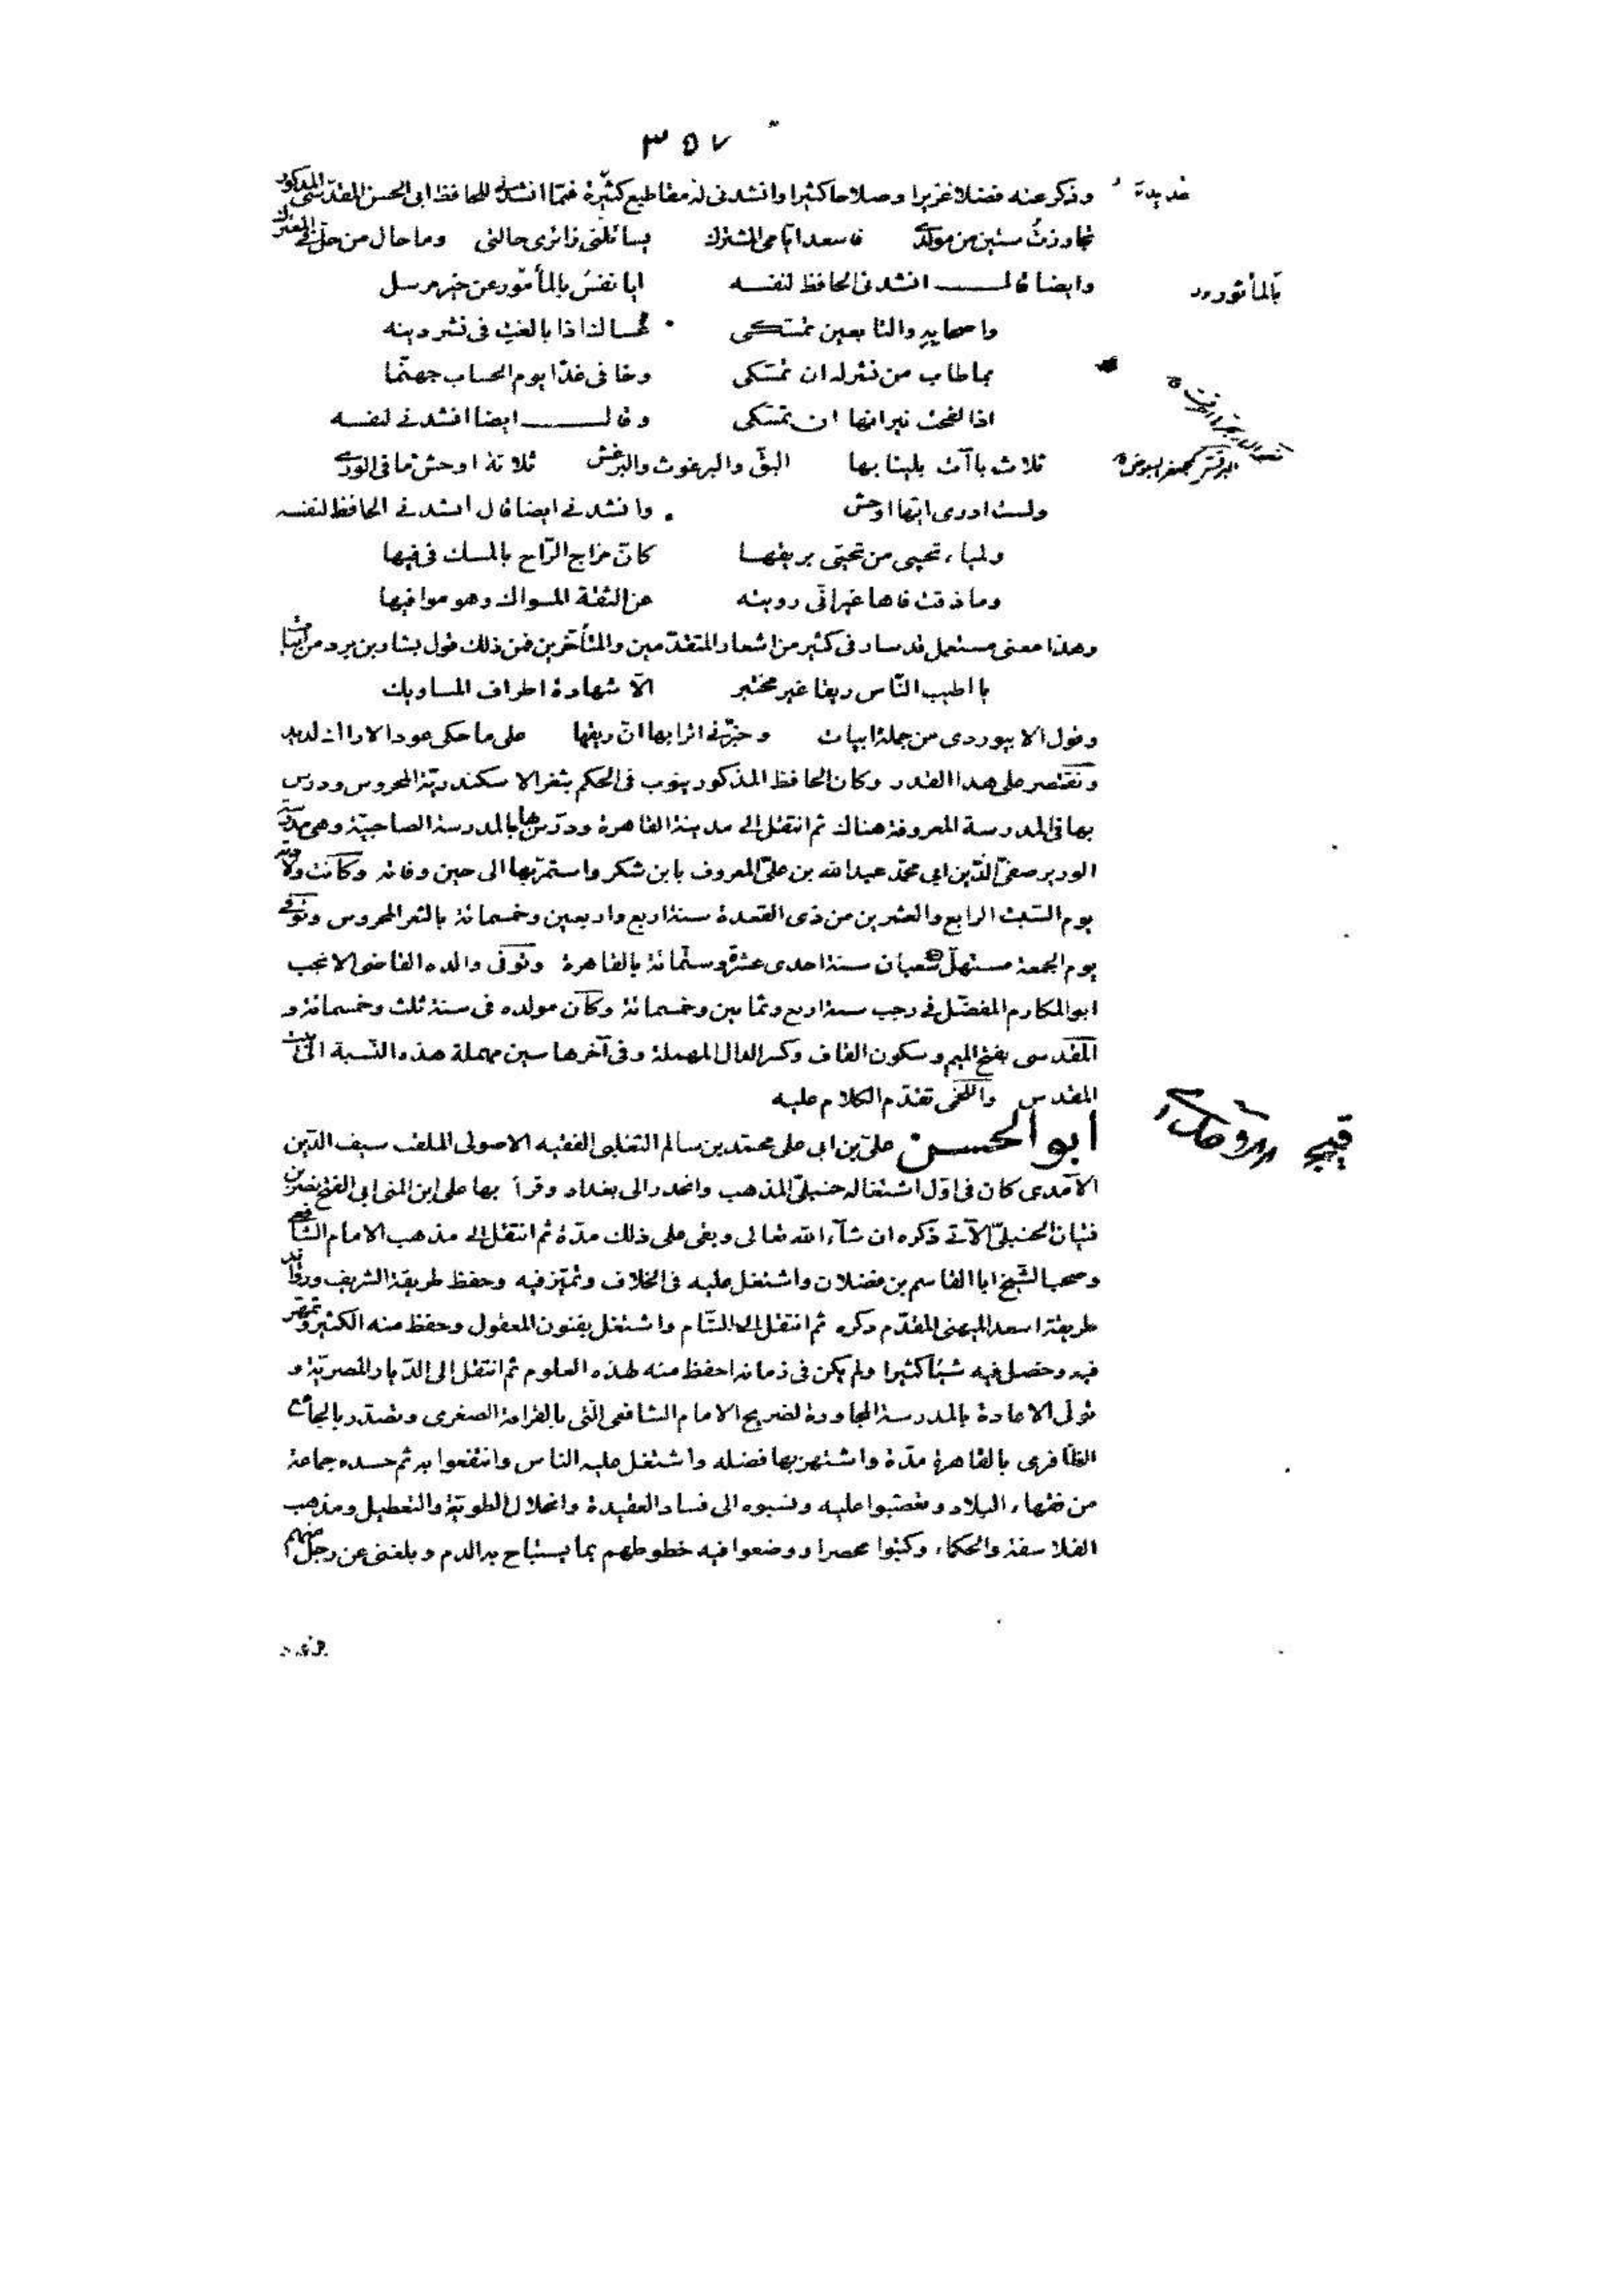 ٣٥٧
وذكر عنه فضلا غزيرا وصلاحا كثيرا وانشدنى له مقاطيع كثيرة فمما انشدنى للحافظ ابى الحسن المقدسى المذكور
تجاوزتُ ستين من مولدى فاسعد ايامى المشترك يسائلنى زائرى حالتى وما حال من حل فى المعترك
وايضا قال انشدنى الحافظ لنفسه ايا نفس بالمأثور عن خير مرسل
بالمأثور
واصحابه والتابعين تمسكى عساك اذا بالغت فى نشر دينه
بما طاب من نشر له ان تمسكى وخافى غدًا يوم الحساب جهنما
اذا لفحت نيرانها ان تمسكى وقال ايضا انشدنى لنفسه
ثلاث باآت بلينا بها البق والبرغوث والبرغش ثلاثة اوحش ما فى الورى
ولست ادرى ايها اوحش وانشدنى ايضا قال انشدنى الحافظ لنفسه
ولمياء تحيى من تحيى بريقها كان مزاج الراح بالمسك فى فيها
وما ذقت فاها غير انى رويته عن الثقة المسواك وهو موافيها
وهذا معنى مستعمل قد سار فى كثير من اشعار المتقدمين والمتأخرين فمن ذلك قول بشار بن برد من ابيات
يا اطيب الناس ريقا غير مختبر الا شهادة اطراف المساويك
وقول الابيوردى من جملة ابيات وخبرنى اترابها ان ريقها على ما حكى عود الاراك لذيذ
ونقتصر على هذا القدر وكان الحافظ المذكور ينوب فى الحكم بثغر الاسكندرية المحروس ودرس
بها فى المدرسة المعروفة هناك ثم انتقل الى مدينة القاهرة ودرس بها بالمدرسة الصاحبية وهى مدرسة
الوزير صفى الدين ابى محمد عبدالله بن على المعروف بابن شكر واستمر بها الى حين وفاته وكانت ولادته
يوم السبت الرابع والعشرين من ذى القعدة سنة اربع واربعين وخمسمائة بالثغر المحروس وتوفى
يوم الجمعة مستهل شعبان سنة احدى عشرة وستمائة بالقاهرة وتوفى والده القاضى الانجب
ابو المكارم المفضل فى رجب سنة اربع وثمانين وخمسمائة وكان مولده فى سنة ثلث وخمسمائة و
المقدسى بفتح الميم وسكون القاف وكسر الدال المهملة وفى آخرها سين مهملة هذه النسبة الى بيت
المقدس واللخمى تقدم الكلام عليه
أبو الحسن على بن ابى على محمد بن سالم التغلبى الفقيه الاصولى الملقب سيف الدين
الآمدى كان فى اول اشتغاله حنبلى المذهب وانحدر الى بغداد وقرأ بها على ابن المنى ابى الفتح نصر بن
فتيان الحنبلى الآتى ذكره ان شآء الله تعالى وبقى على ذلك مدة ثم انتقل الى مذهب الامام الشافعى
وصحب الشيخ ابا القاسم بن فضلان واشتغل عليه فى الخلاف وتميز فيه وحفظ طريقة الشريف وزوائد
طريقة اسعد الميهنى المقدم ذكره ثم انتقل الى الشام واشتغل بفنون المعقول وحفظ منه الكثير وتمهر
فيه وحصل فيه شيئا كثيرا ولم يكن فى زمانه احفظ منه لهذه العلوم ثم انتقل الى الديار المصرية و
تولى الاعادة بالمدرسة المجاورة لضريح الامام الشافعى التى بالقرافة الصغرى وتصدر بالجامع
الظافرى بالقاهرة مدة واشتهر بها فضله واشتغل عليه الناس وانتفعوا به ثم حسده جماعة
من فقهاء البلاد وتعصبوا عليه ونسبوه الى فساد العقيدة وانحلال الطوية والتعطيل ومذهب
الفلاسفة والحكماء وكتبوا محضرا ووضعوا فيه خطوطهم بما يستباح به الدم وبلغنى عن رجل منهم